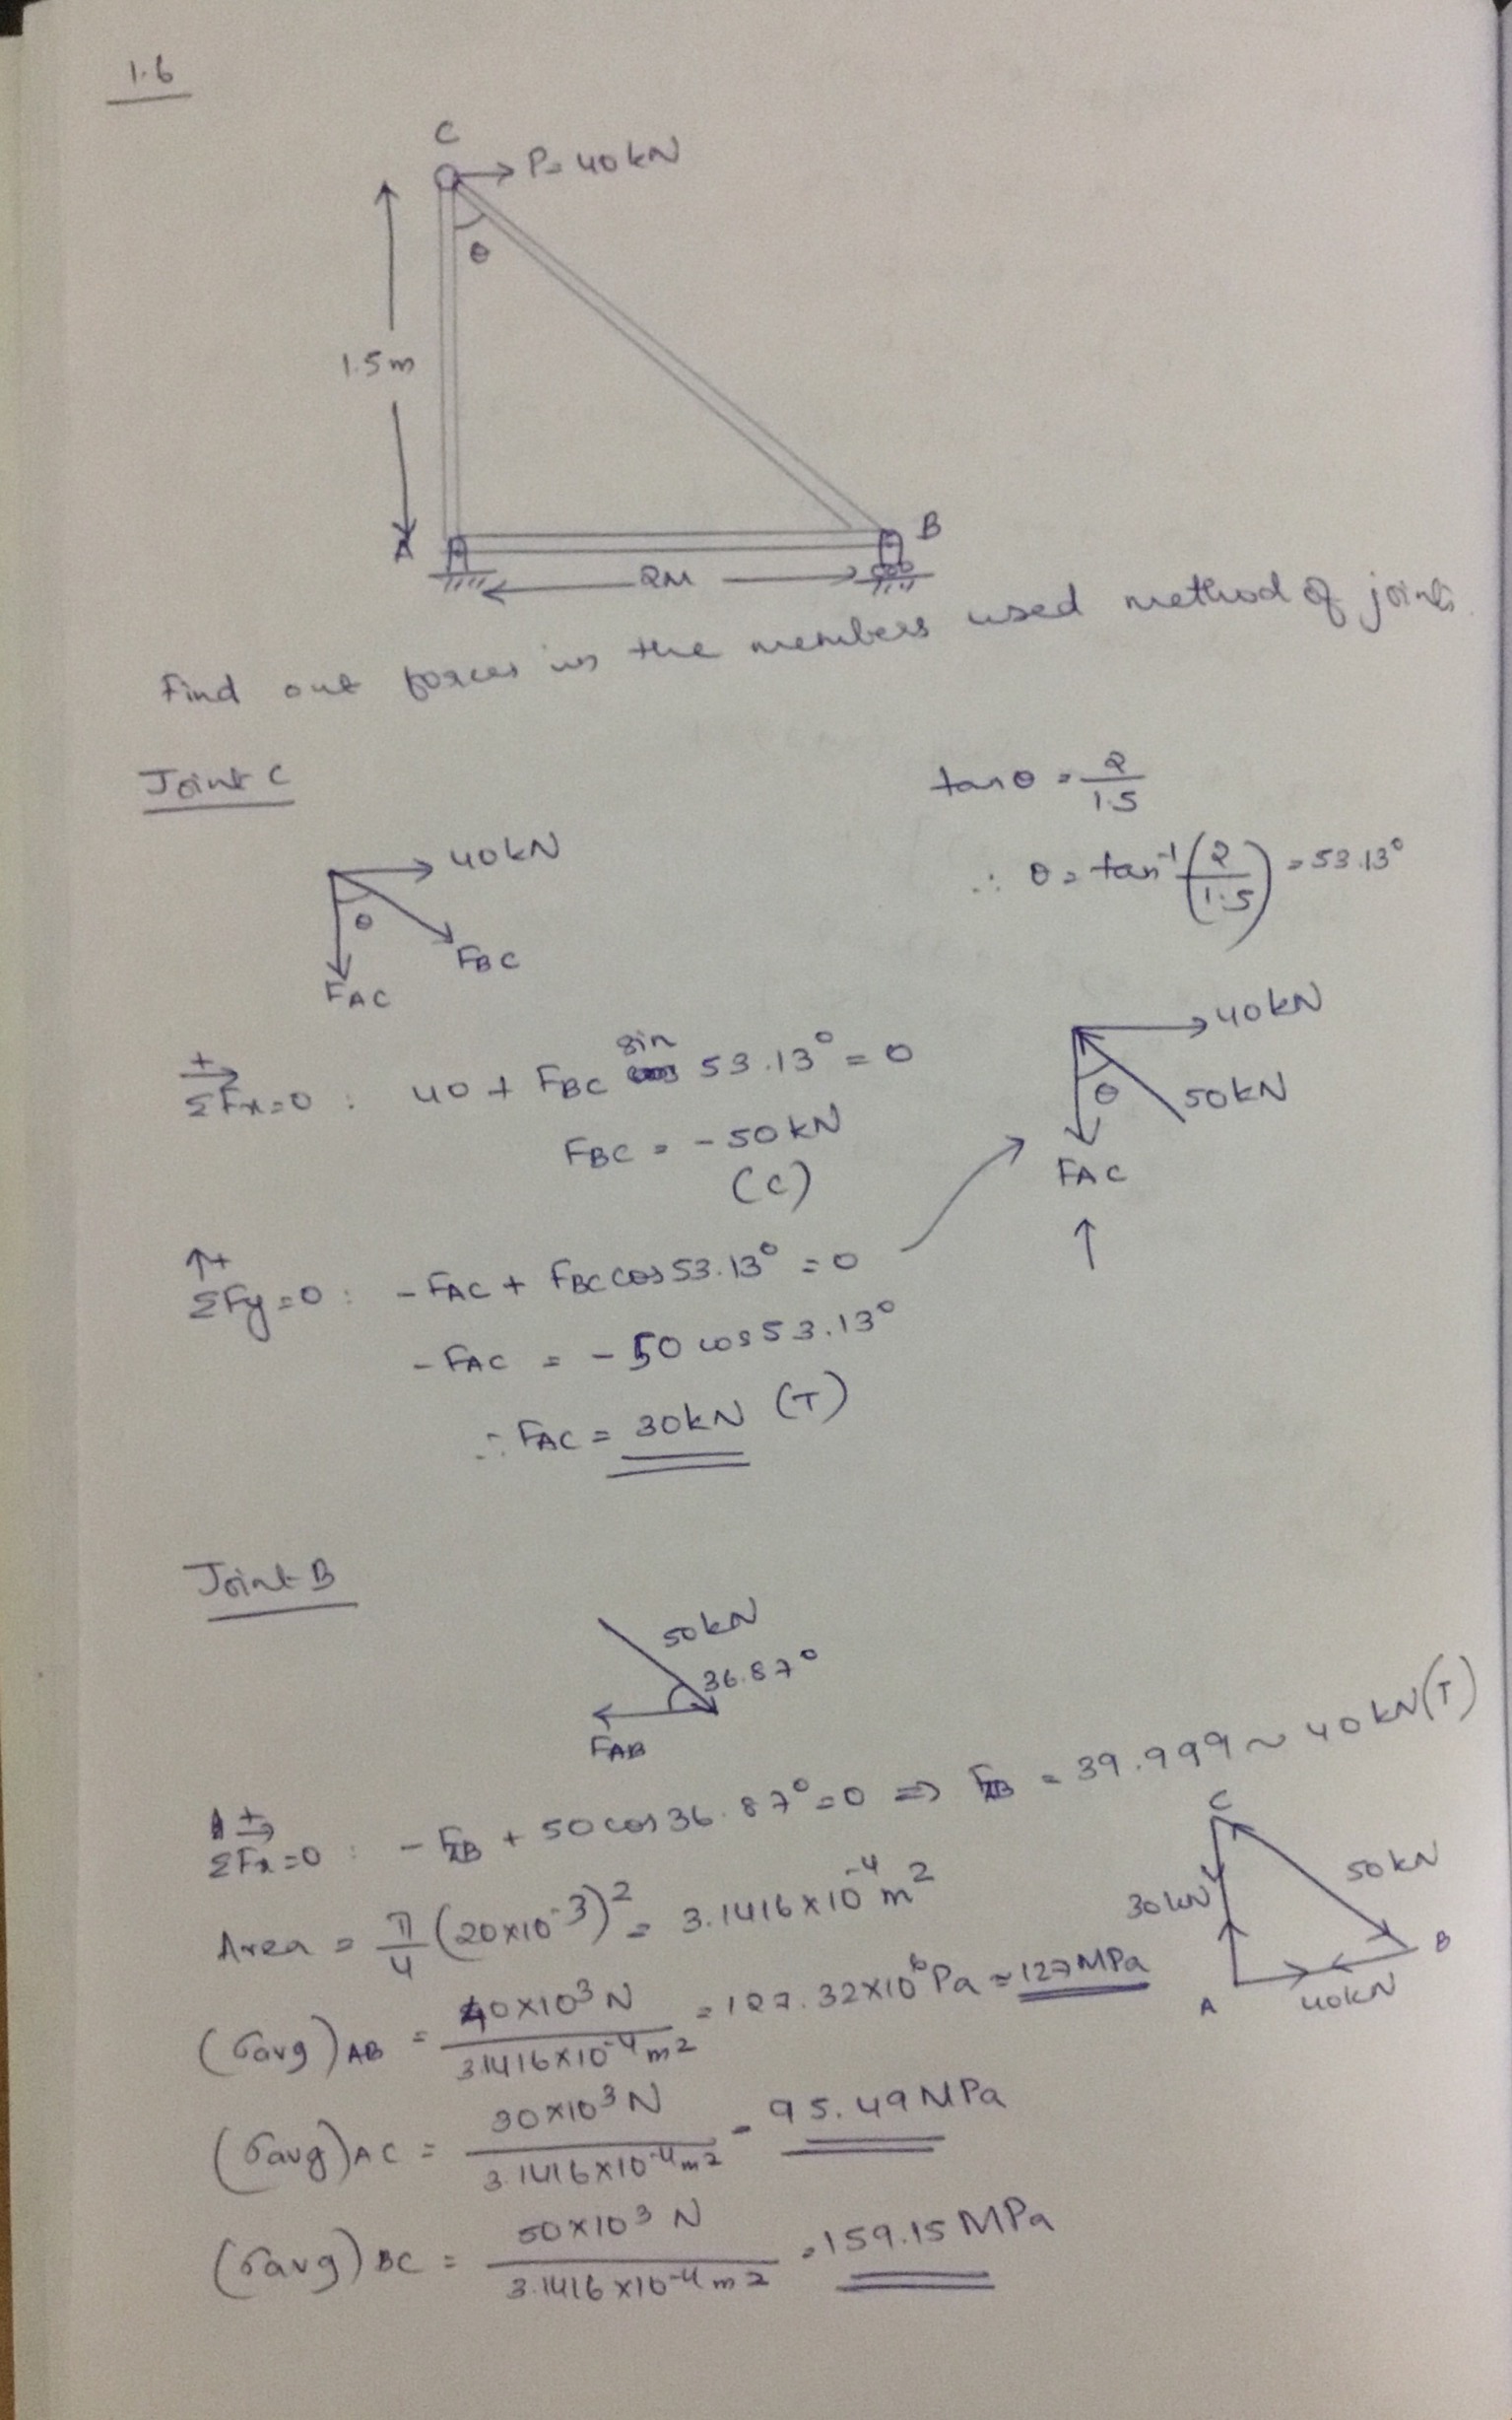 1.6
C
P= 40 kN
θ
1.5m
A
B
2M
Find out forces in the members used method of joints.
Joint C
tanθ = 2/1.5
∴ θ = tan⁻¹(2/1.5) = 53.13°
40kN
θ
FBC
FAC
+→ ΣFx=0 : 40 + FBC sin 53.13° = 0
FBC = -50kN
(C)
40kN
θ
50kN
FAC
↑
↑+ ΣFy=0 : -FAC + FBC cos53.13° = 0
-FAC = -50 cos53.13°
∴ FAC = 30kN (T)
Joint B
50kN
36.87°
FAB
+→ ΣFx=0 : -FAB + 50cos36.87°=0 ⇒ FAB = 39.999 ~ 40kN(T)
Area = π/4 (20×10⁻³)² = 3.1416×10⁻⁴ m²
C
50kN
30kN
B
A
40kN
(σavg)AB = 40×10³N / 3.1416×10⁻⁴m² = 127.32×10⁶Pa ≈ 127MPa
(σavg)AC = 30×10³N / 3.1416×10⁻⁴m² = 95.49MPa
(σavg)BC = 50×10³ N / 3.1416×10⁻⁴m² = 159.15MPa